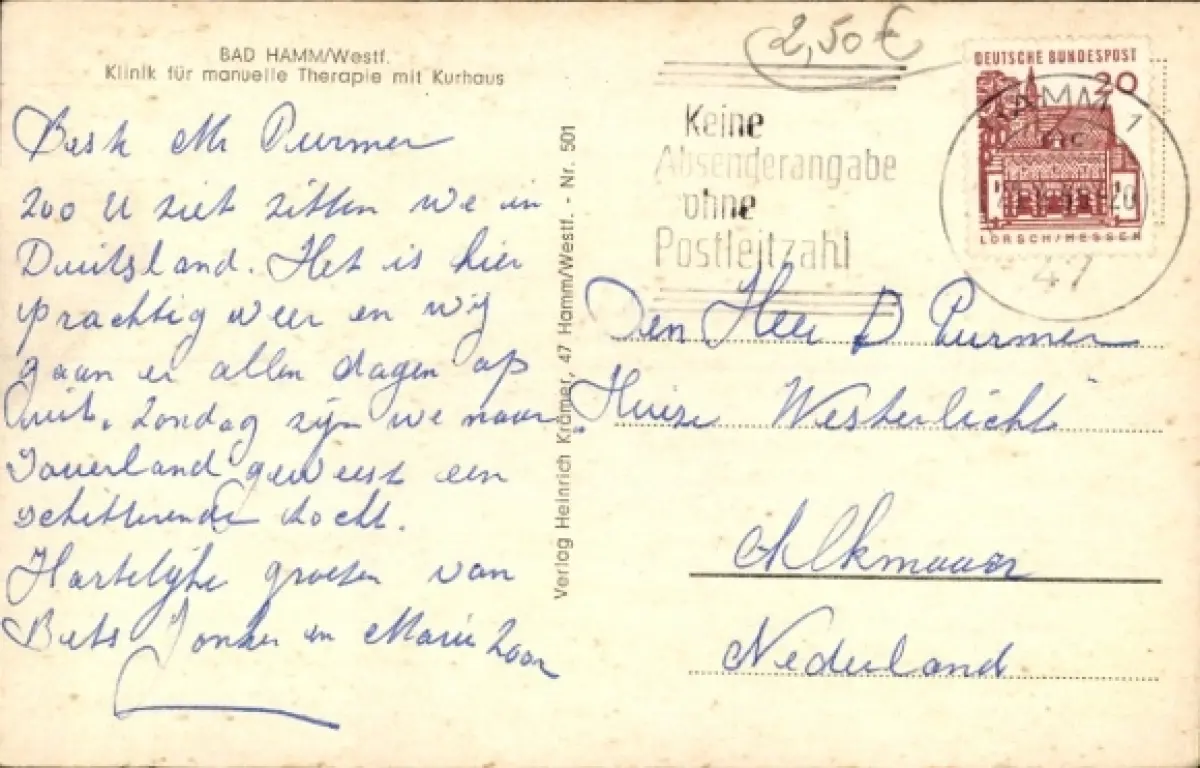 BAD HAMM/Westf.
Klinik für manuelle Therapie mit Kurhaus
Beste Mr Purmer
Zoo U ziet zitten we in
Duitsland. Het is hier
prachtig weer en wij
gaan er allen dagen op
uit. Zondag zijn we naar
Sauerland geweest een
schitterende tocht.
Hartelijke groeten van
Bets Jonker en Marie
Verlag Heinrich Krämer, 47 Hamm/Westf. - Nr. 501
2,50 €
Keine
Absenderangabe
ohne
Postleitzahl
DEUTSCHE BUNDESPOST
20
LORSCH/HESSEN
HAMM 1
47
Den Heer D Purmer
Huize Westerlicht"
Alkmaar
Nederland